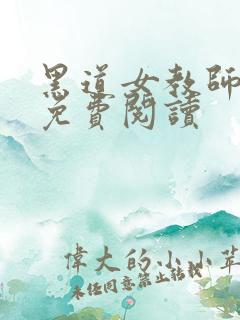 黑道女教師
免費閱讀
偉大的小小草
未經同意禁止轉載